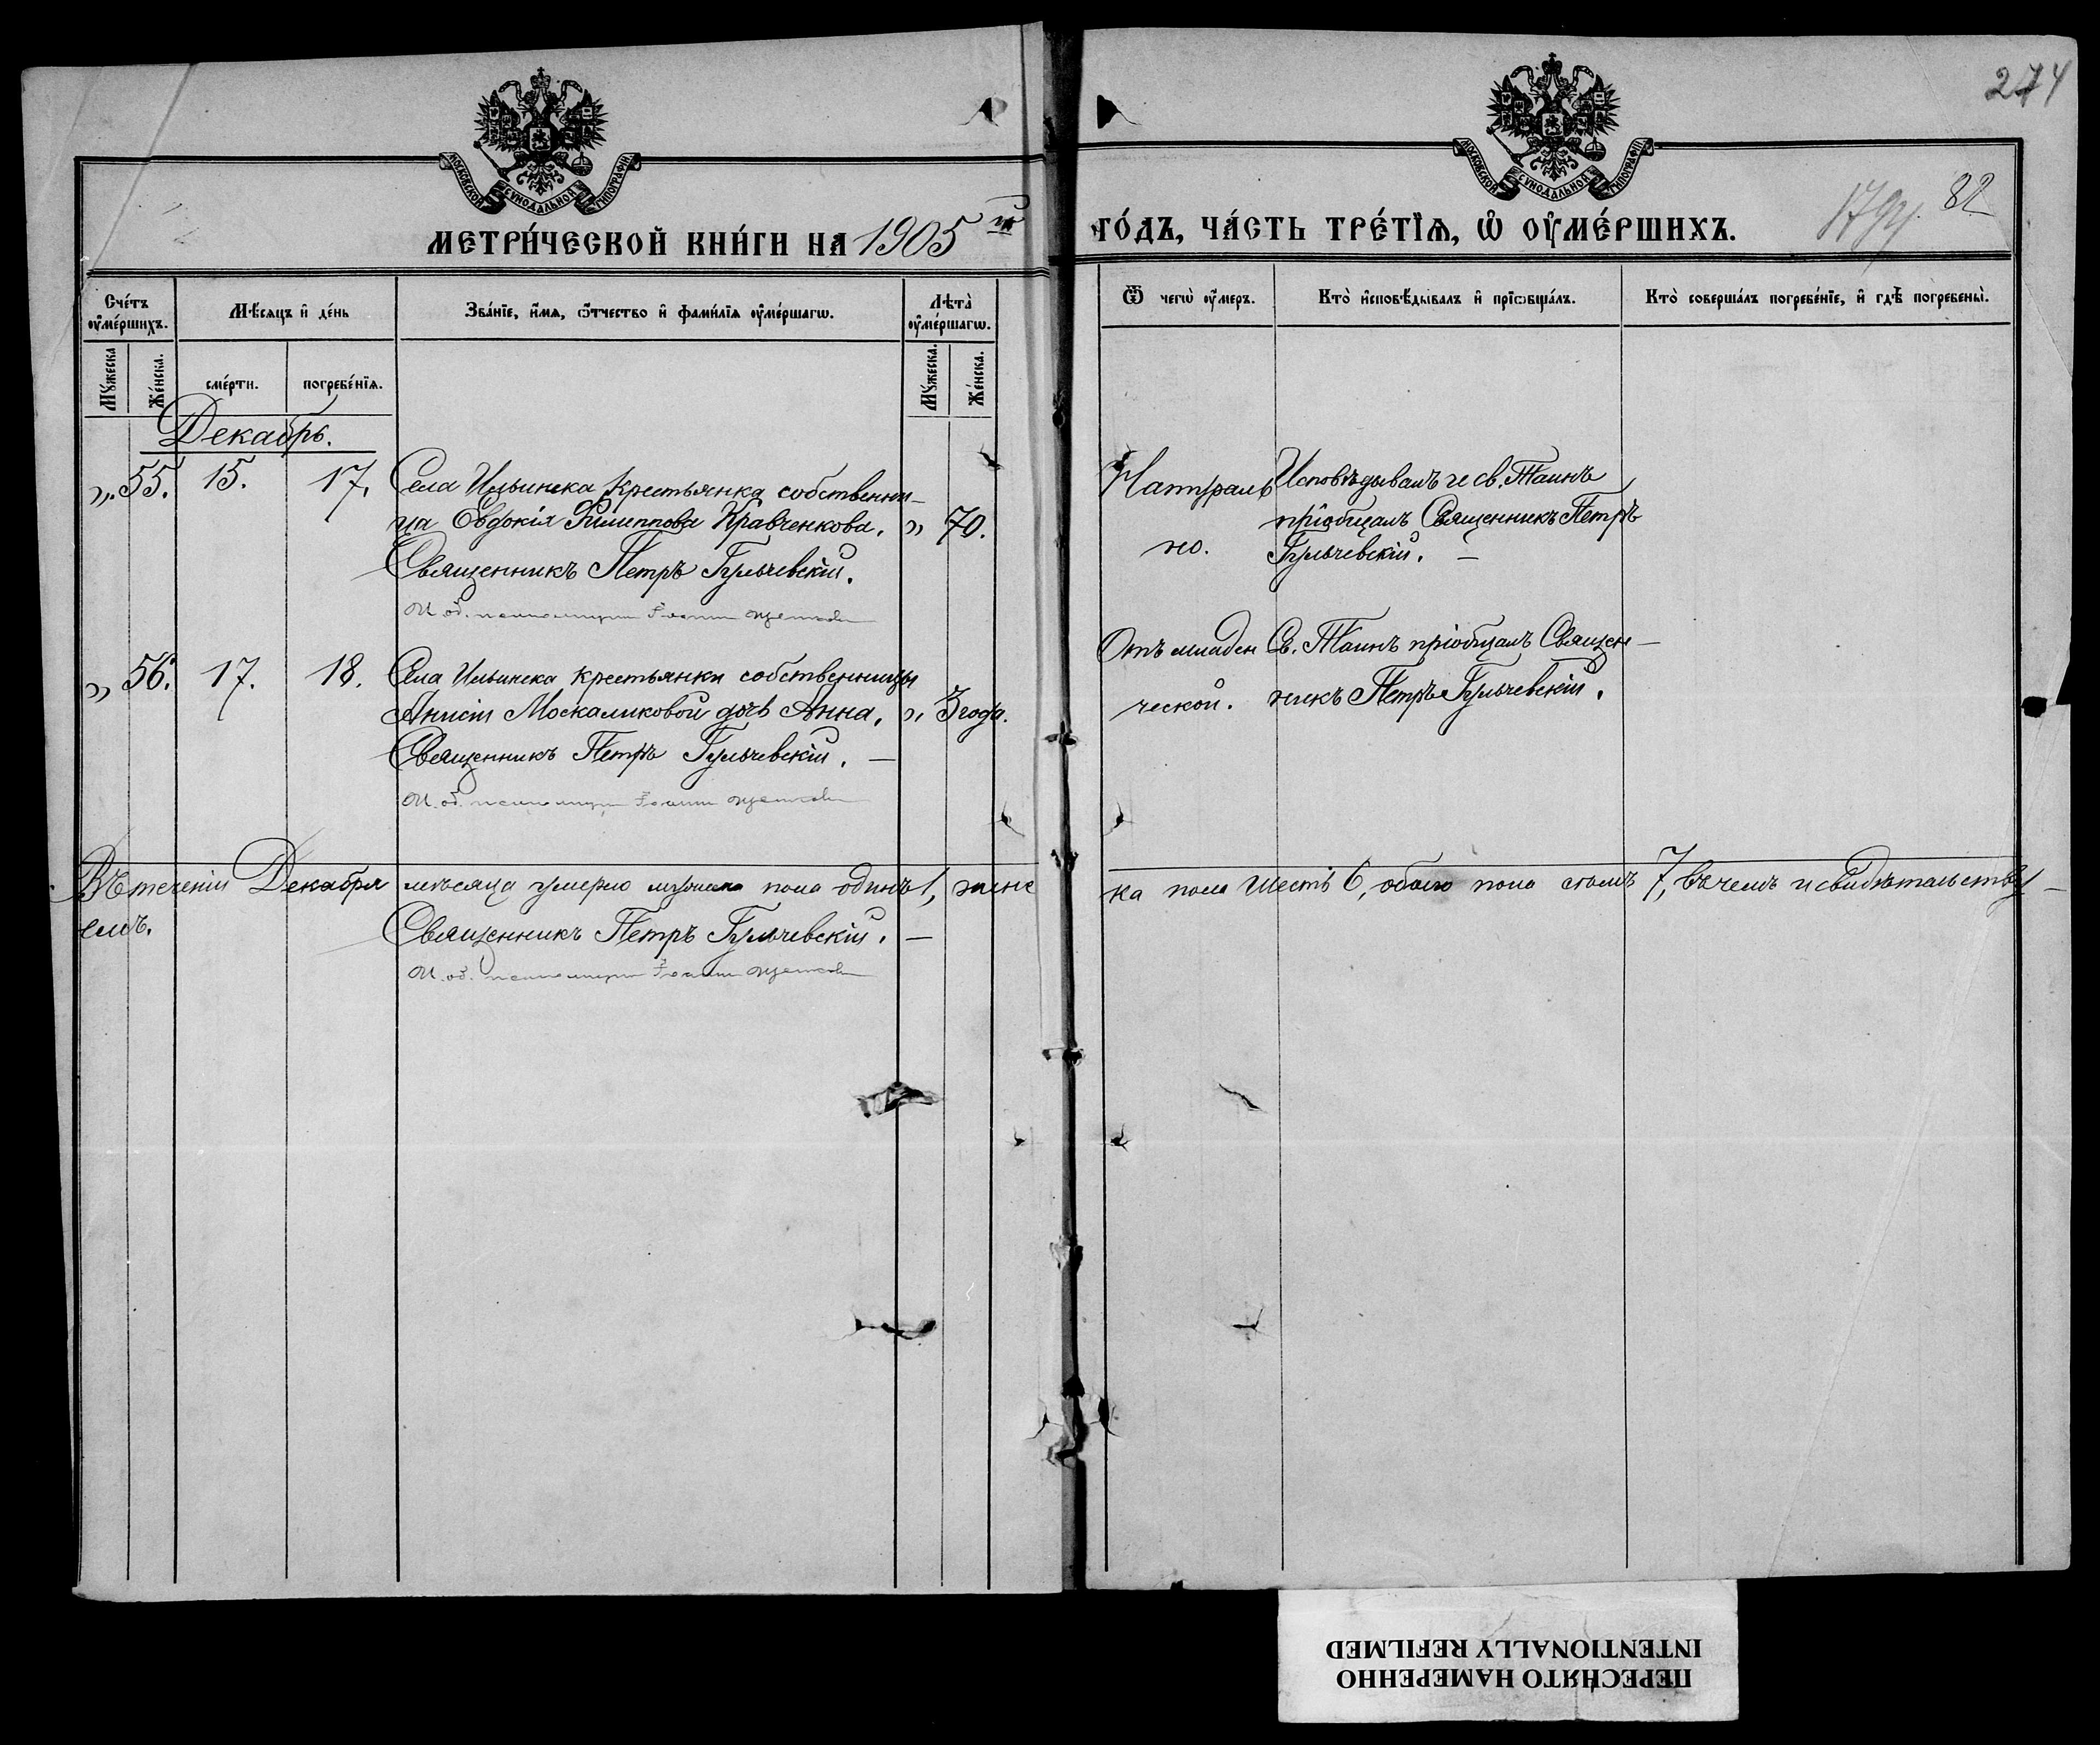 274
82
МОСКОВСКОЙ СѴНОДАЛЬНОЙ ТИПОГРАФІИ
МОСКОВСКОЙ СѴНОДАЛЬНОЙ ТИПОГРАФІИ
МЕТРИ́ЧЕСКОЙ КНИ́ГИ НА 1905 й
ГО́ДЪ, ЧА́СТЬ ТРЕ́ТЇѦ, Ѡ҆ ОУ҆МЕ́РШИХЪ.
Сче́тъ оу҆ме́ршихъ.
Мѣ́сяцъ и҆ де́нь
Зва́нїе, и҆́мя, ѻ҆́тчество и҆ фами́лїя оу҆ме́ршагѡ.
Лѣта̀ оу҆ме́ршагѡ.
Ѿ чегѡ̀ оу҆́меръ.
Кто̀ и҆сповѣ́дывалъ и҆ прїѻбща́лъ.
Кто̀ соверша́лъ погребе́нїе, и҆ гдѣ̀ погребены̀.
Му́жеска
Же́нска.
сме́рти.
погребе́нїя.
Му́жеска.
Же́нска.
Декабрь.
„ 55. 15. 17. Села Ильинска крестьянка собственни-
ца Евдокія Филиппова Кравченкова. „ 70.
Священникъ Петръ Гульчевскій.
И. об.
Натураль
но.
Исповѣдывалъ и св. Таинъ
пріобщалъ Священникъ Петръ
Гульчевскій. —
„ 56. 17. 18. Села Ильинска крестьянки собственницы
Анисіи Москаликовой дочь Анна. „ 3 года.
Священникъ Петръ Гульчевскій. —
И. об.
Отъ младен
ческой.
Св. Таинъ пріобщалъ Священ-
никъ Петръ Гульчевскій.
Въ теченіи Декабря мѣсяца умерло мужеска пола одинъ 1, женс
ка пола шесть 6, обоего пола семь 7, въ чемъ и свидѣтельству-
емъ.
Священникъ Петръ Гульчевскій. —
И. об.
ПЕРЕСНЯТО НАМЕРЕННО
INTENTIONALLY REFILMED